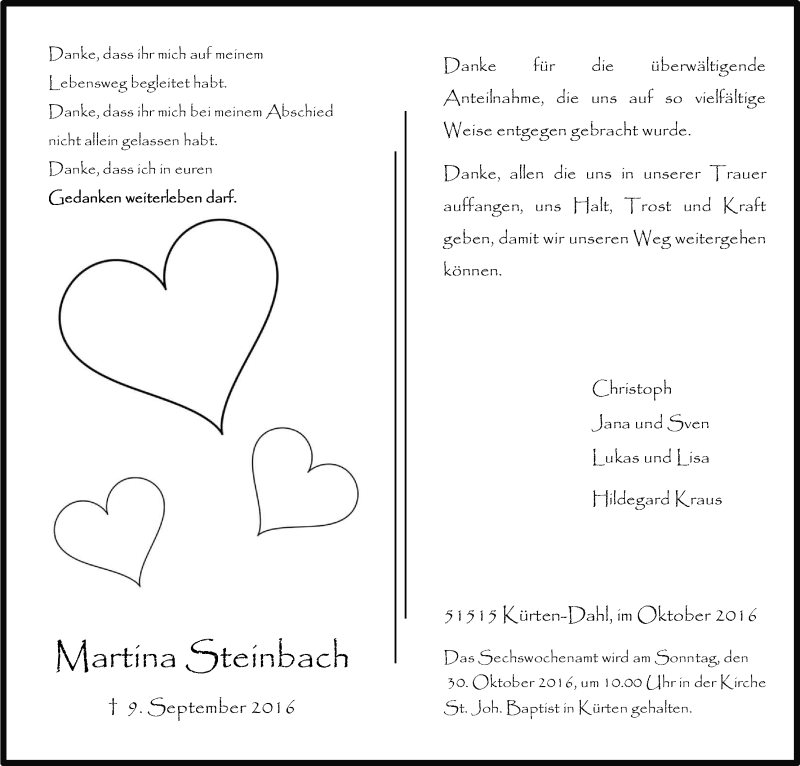 Danke, dass ihr mich auf meinem
Lebensweg begleitet habt.
Danke, dass ihr mich bei meinem Abschied
nicht allein gelassen habt.
Danke, dass ich in euren
Gedanken weiterleben darf.
Martina Steinbach
† 9. September 2016
Danke für die überwältigende
Anteilnahme, die uns auf so vielfältige
Weise entgegen gebracht wurde.
Danke, allen die uns in unserer Trauer
auffangen, uns Halt, Trost und Kraft
geben, damit wir unseren Weg weitergehen
können.
Christoph
Jana und Sven
Lukas und Lisa
Hildegard Kraus
51515 Kürten-Dahl, im Oktober 2016
Das Sechswochenamt wird am Sonntag, den
30. Oktober 2016, um 10.00 Uhr in der Kirche
St. Joh. Baptist in Kürten gehalten.